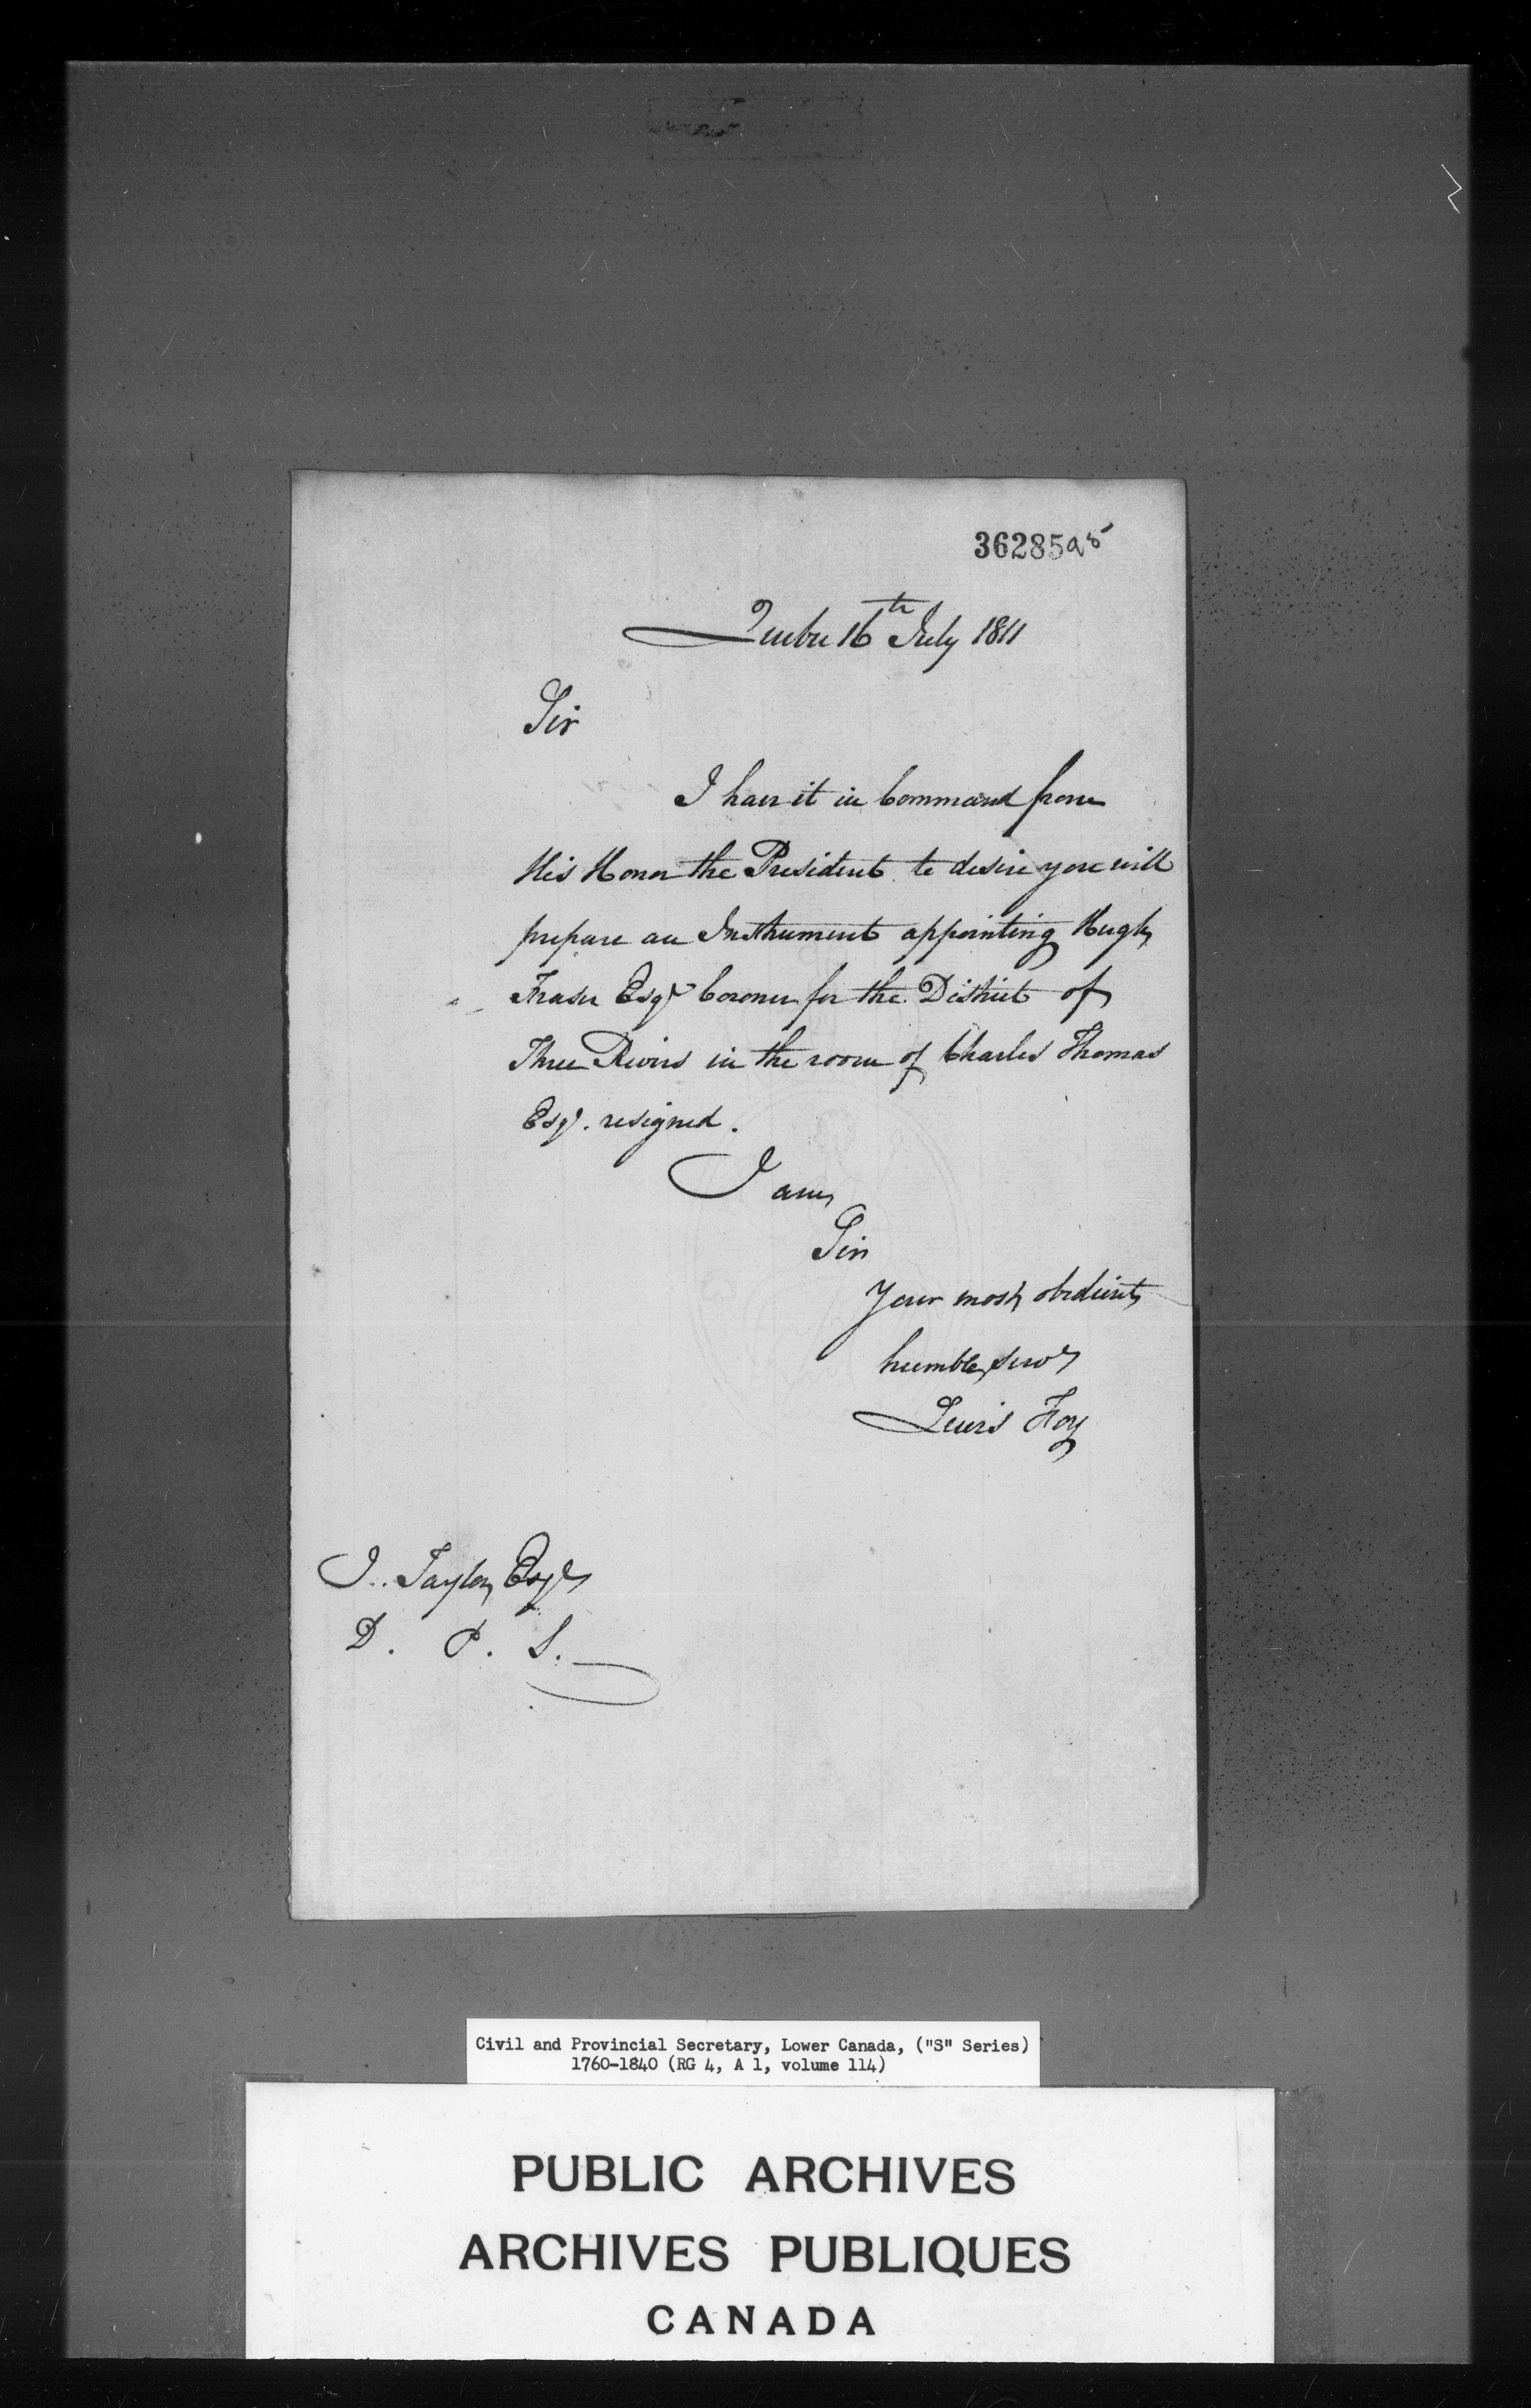 36285a8
Quebec 16th July 1811
Sir
I have it in Command from
His Honor the President to desire you will
prepare an Instrument appointing Hugh
Fraser Esqr Coroner for the District of
Three Rivers in the room of Charles Thomas
Esqr. resigned.
I am,
Sir
Your most obedient
humble servt
Lewis Foy
J.. Taylor Esqr
D. P. S.
Civil and Provincial Secretary, Lower Canada, ("S" Series)
1760-1840 (RG 4, A 1, volume 114)
PUBLIC ARCHIVES
ARCHIVES PUBLIQUES
CANADA